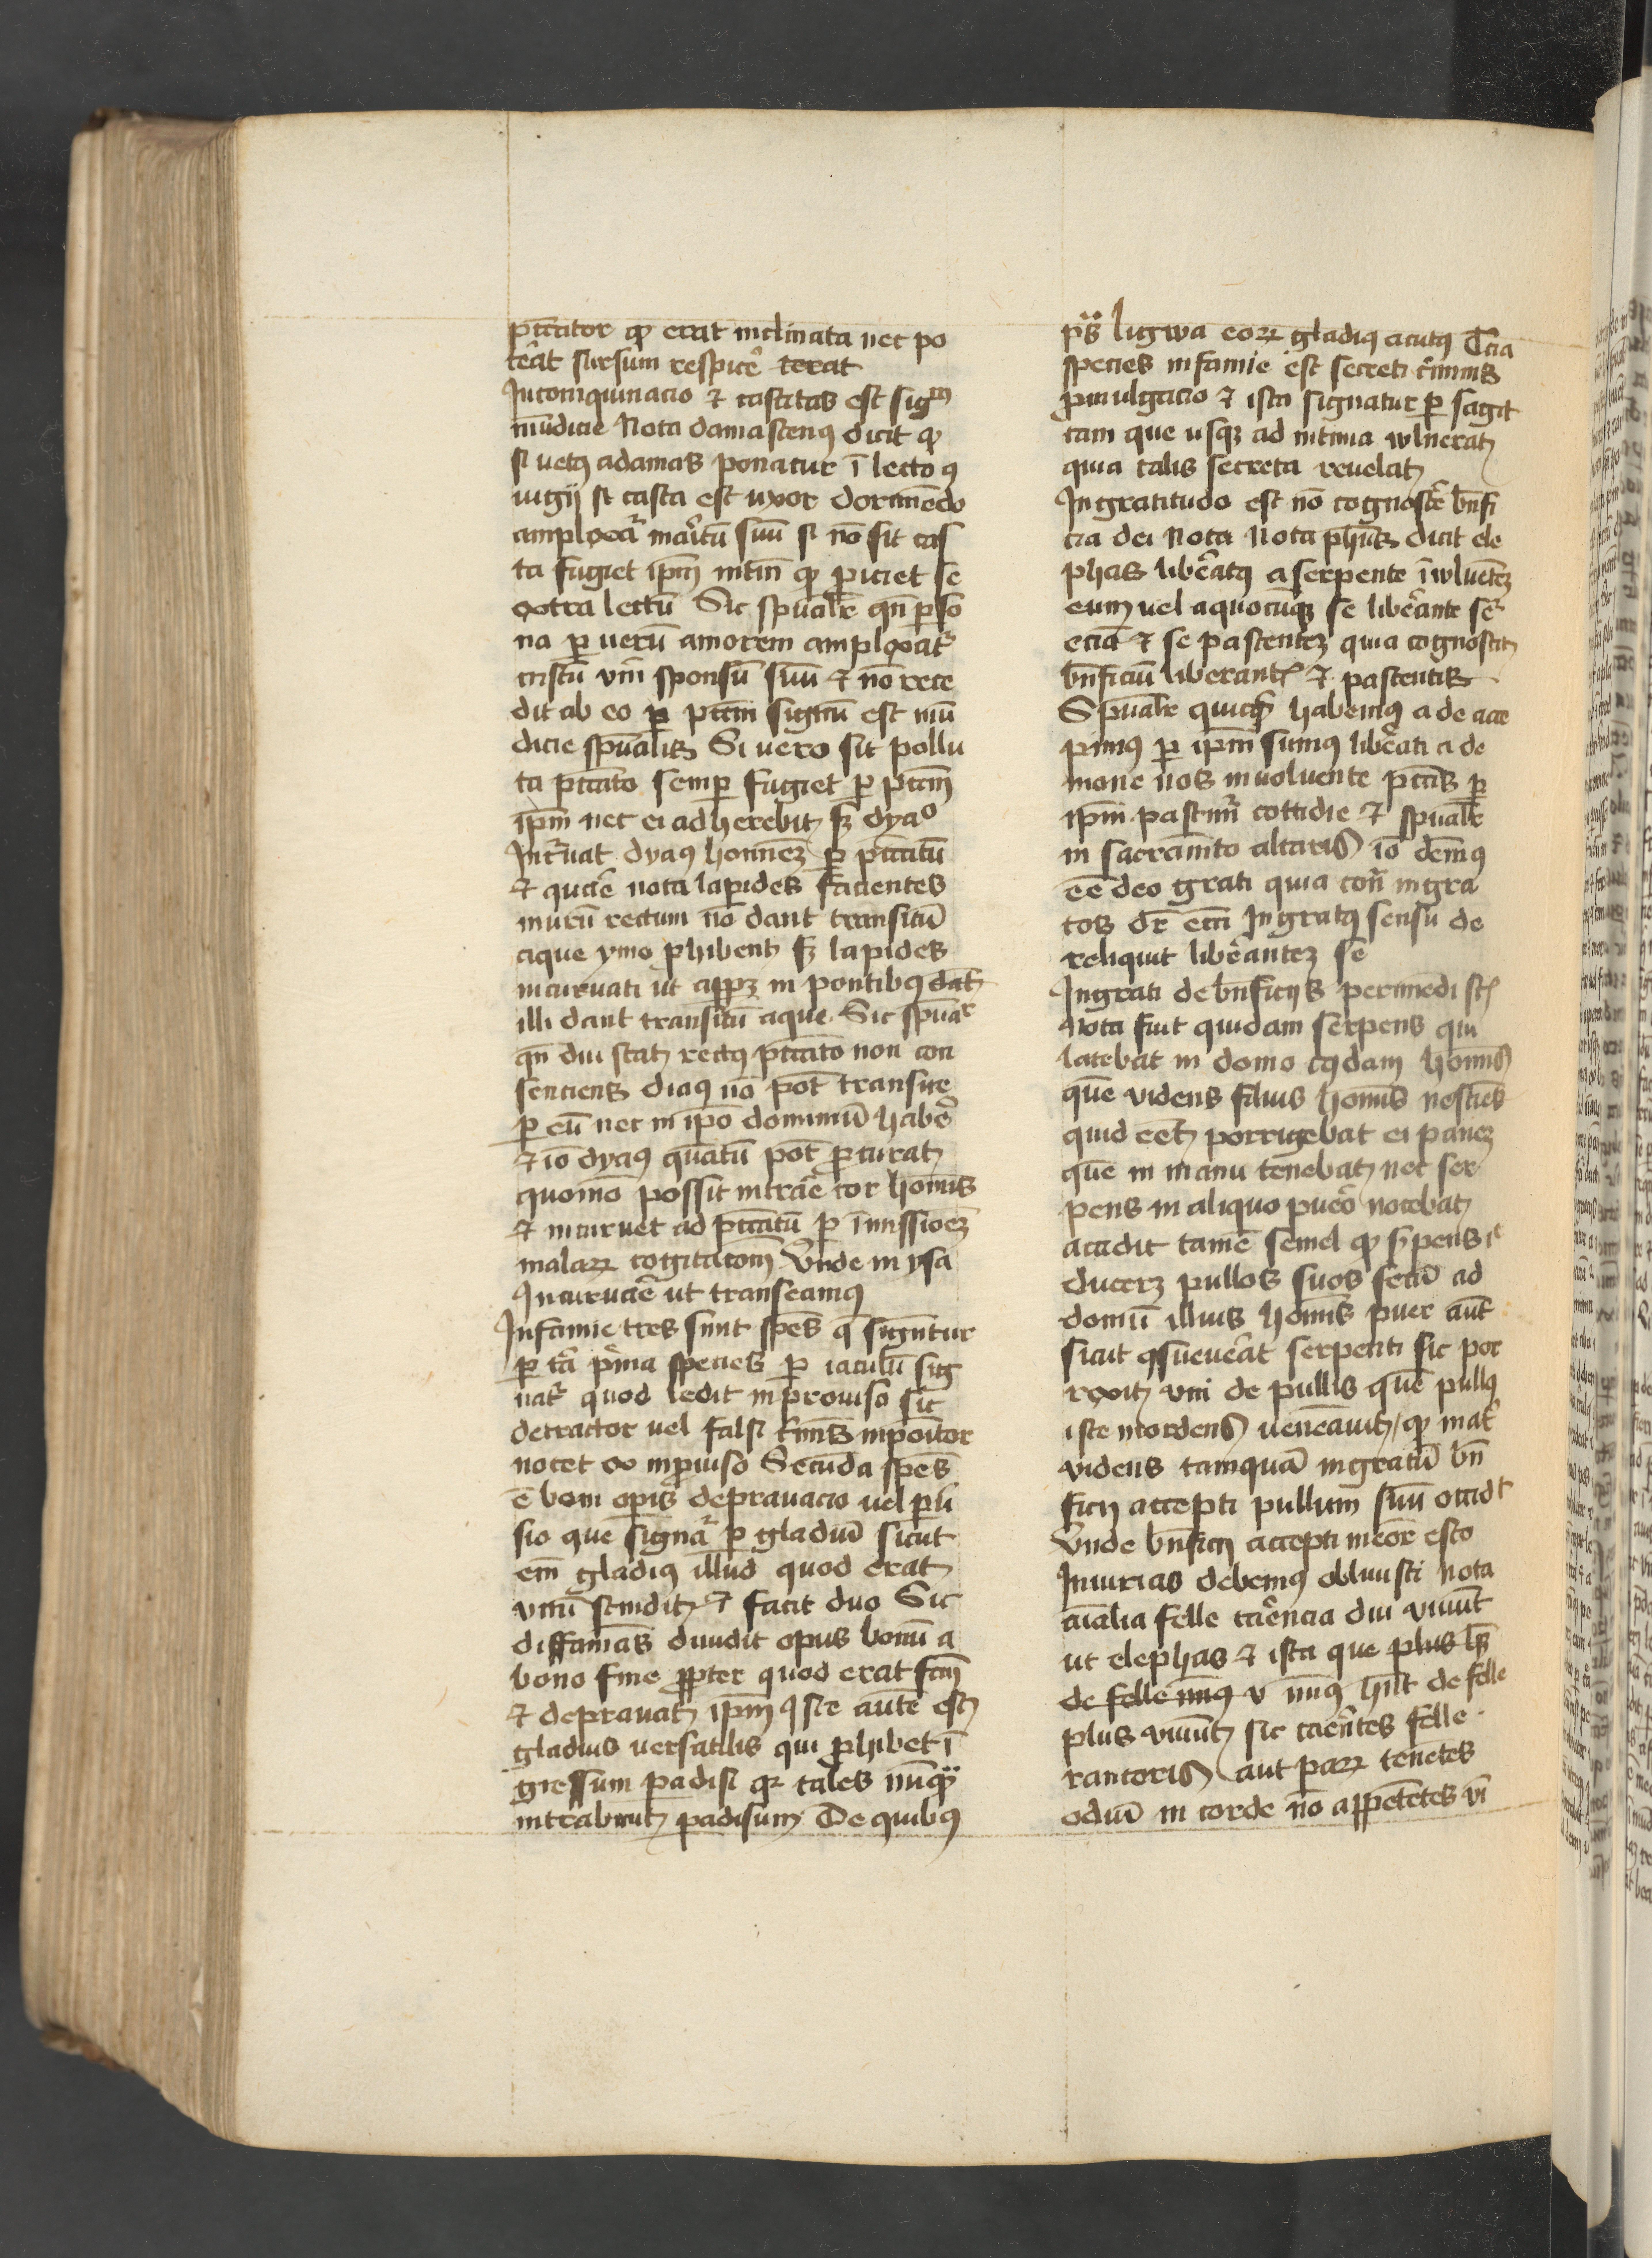 pccator qꝫ erat inclinata nec po
terat sursum respicere terat
Incoinquinacio ⁊ castitas est sigᵐ
mūdicie Nota damascenꝰ dicit qꝫ
si uerꝰ adamas ponatur ī lecto ꝯ
iugij si casta est uxor dormiēdo
amplexaᷣ maritū suū si nō sit cas
ta fugiet ip̄m intm̄ qꝫ ꝓiciet se
extra lectū Sic spūalr̄ qn̄ ꝑso
na ꝑ uerū amorem amplexatᷣ
cristū vn̄ sponsū suū ⁊ nō rece
dit ab eo ꝑ pctm̄ signū est mū
dicie spūalis Si uero sit pollu
ta pccato semꝑ fugiet ꝑ pctm̄
ip̄m nec ei adherebit sꝫ dyaᵒ
Incuruat dyaꝰ hominēꝫ ꝑ pccatū
⁊ quare nota lapides facientes
murū rectum nō dant transitū
aque ymo ꝓhibent sꝫ lapides
incuruati ut appꝫ in pontibꝰ dant
illi dant transitū aque Sic spūaᵉʳ
qn̄ diu stat rectꝰ pccato non con
senciens diaꝰ nō pōt transire
ꝑ eū nec in ip̄o dominiū habere
⁊ iō dyaꝰ quātū pōt ꝓcurat
quomō possit intrare cor hominis
⁊ incuruet ad pccatū ꝑ īmissioēꝫ
malaꝝ cogitacōm Vnde in ysa
Incuruare ut transeamꝰ
Infamie tres sunt spēs q̄ signntur
ꝑ tā prima species ꝑ iaculū sig
natᷣ quod ledit inprouiso sic
detractor uel falsi criminis inpoitor
nocet ex inprouiso Secūda spēs
ē boni opis deprauacio uel ꝑū
sio que signaᷣ ꝑ gladiū sicut
em̄ gladiꝰ illud quod erat
vnū scindit ⁊ facit duo Sic
diffamās diuidit opus bonū a
bono fine ꝓpter quod erat fcm̄
⁊ deprauat ip̄m Iste autē est
gladius uersatilis qui ꝓhibet ī
gressum padisi qꝛ tales nūqᵃ
intrabunt padisum De quibꝰ
pˢ lingwa eoꝝ gladiꝰ acutꝰ Tcia
species infamie est secreti criminis
ꝓmulgacio ⁊ ista signatur ꝑ sagit
tam que usqꝫ ad intima wlnerat
quia talis secreta reuelat
Ingratitudo est nō cognoscere bn̄fi
cia dei Nota Nota phūs dicit ele
phas liberatꝰ a serpente īwluētē
eum uel a quocūqꝫ se liberante seᷣ
eciā ⁊ se pascenteꝫ quia cognoscit
bn̄ficiū liberantꝭ ⁊ pascentis
Spūalr̄ quicqd habemꝰ a deo acce
pimꝰ ꝑ ip̄m sumꝰ liberati a de
mone nos inuoluente pctīs ꝑ
ip̄m pascimᷣ cottidie ⁊ spūalr̄
in sacramēto altaris iō dem̄ꝰ
eē deo grati quia con̄ ingra
tos dr̄ ecci Ingratꝰ sensu de
reliquit liberanteꝫ se
Ingrati de bn̄ficijs perimedi scꝭ
Nota fuit quidam serpens qui
latebat in domo cꝰdam hominis
quē videns filius hominis nesciēs
quid eēt porrigebat ei paneꝫ
quē in manu tenebat nec ser
pens in aliquo puero nocebat
accidit tamē semel qꝫ serpens
duceret pullos suos secū ad
domū illius hominis puer aūt
sicut ꝯsueuerat serpenti sic por
rexit vni de pullis quē pullꝰ
iste mordens uenēauit qꝫ matᷣ
videns tamquā ingratū bn̄
ficij accepti pullum suū occidᵗ
Vnde bn̄ficij accepti memor esto
Iniurias debemꝰ obliuisci Nota
aīalia felle carencia diu viuūt
ut elephas ⁊ ista que plus hn̄t
de felle minꝰ v minꝰ hn̄t de felle
plus viuūt sic carentes felle
rancoris aut paꝝ tenētes
odiū in corde nō appetētes vī